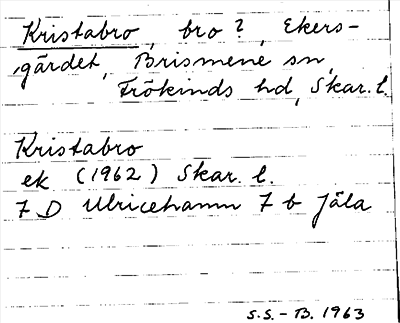 Kristabro, bro?, Ekers-
gärdet, Brismene sn,
Frökinds hd, Skar. l.
Kristabro
ek (1962) Skar. l.
7 D Ulricehamn 7 b Jäla
S.S. - B. 1963